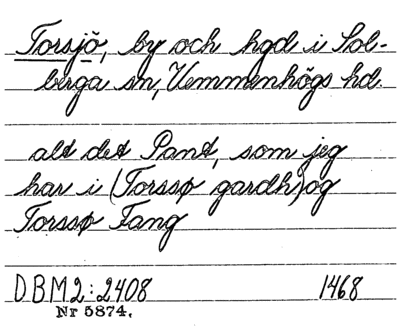 Torsjö, by och hgd i Sol-
berga sn, Vemmenhögs hd.
alt det Pant, som jeg
har i (Torssø gardh) og
Torssø Fang
DBM2:2408 1468
Nr 5874.